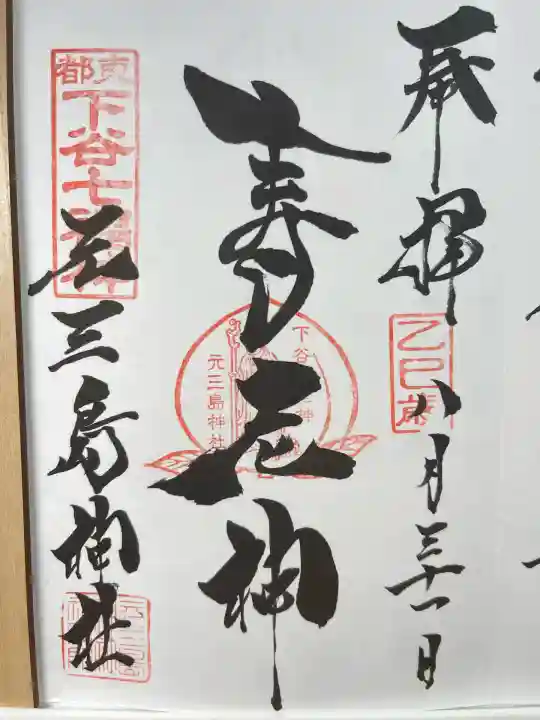 奉拝
乙巳歳
八月三十一日
寿老神
下谷
神
元三島神社
東都
下谷七福神
元三島神社